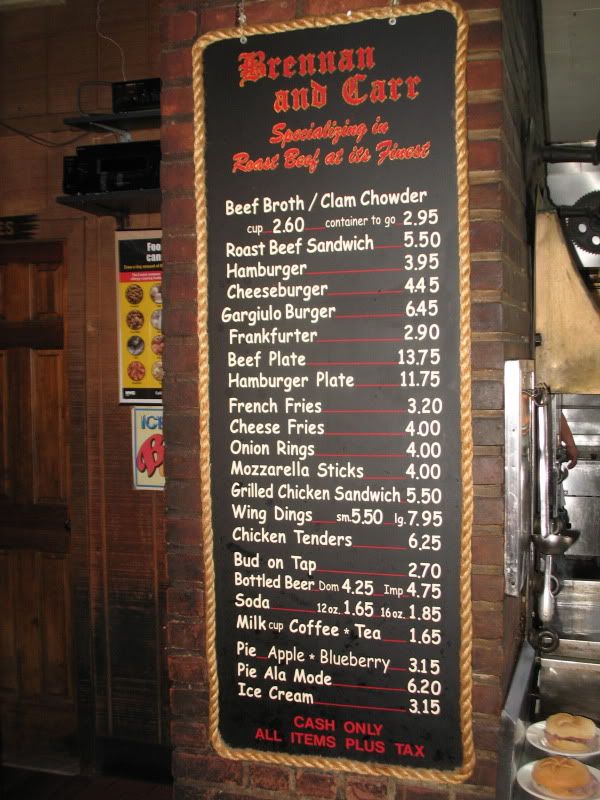 Brennan
and Carr
Specializing in
Roast Beef at its Finest
Beef Broth / Clam Chowder
cup 2.60 container to go 2.95
Roast Beef Sandwich 5.50
Hamburger 3.95
Cheeseburger 4.45
Gargiulo Burger 6.45
Frankfurter 2.90
Beef Plate 13.75
Hamburger Plate 11.75
French Fries 3.20
Cheese Fries 4.00
Onion Rings 4.00
Mozzarella Sticks 4.00
Grilled Chicken Sandwich 5.50
Wing Dings sm. 5.50 lg. 7.95
Chicken Tenders 6.25
Bud on Tap 2.70
Bottled Beer Dom 4.25 Imp 4.75
Soda 12 oz. 1.65 16 oz. 1.85
Milk cup Coffee * Tea 1.65
Pie Apple * Blueberry 3.15
Pie Ala Mode 6.20
Ice Cream 3.15
CASH ONLY
ALL ITEMS PLUS TAX